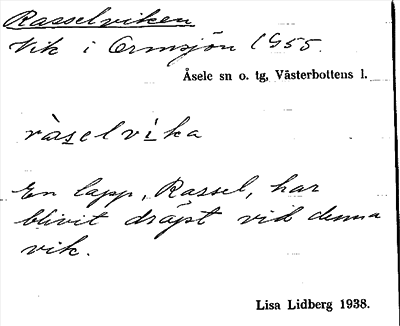 Rasselviken
Vik i Ormsjön 1955.
Åsele sn o. tg, Västerbottens l.
ràselvika
En lapp, Rassel, har
blivit dräpt vid denna
vik.
Lisa Lidberg 1938.